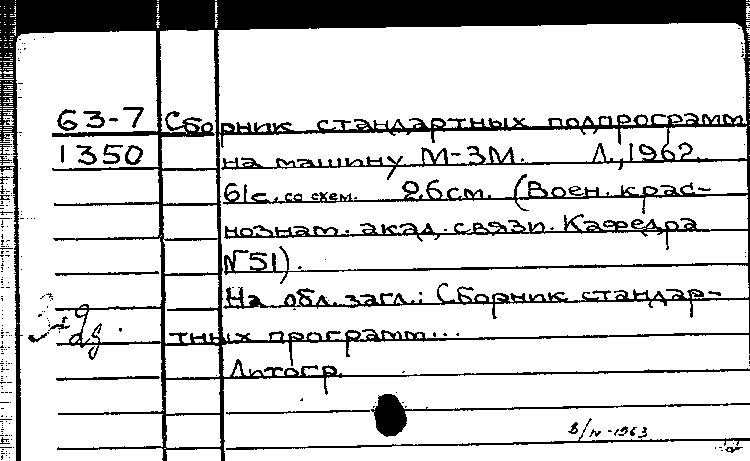 63-7 Сборник стандартных подпрограмм
1350 на машину М-3М. Л., 1962.
61с. со схем. 26см. (Воен. крас-
нознам. акад. связи. Кафедра
№51).
На обл. загл.: Сборник стандар-
тных программ...
Литогр.
8/IV-1963